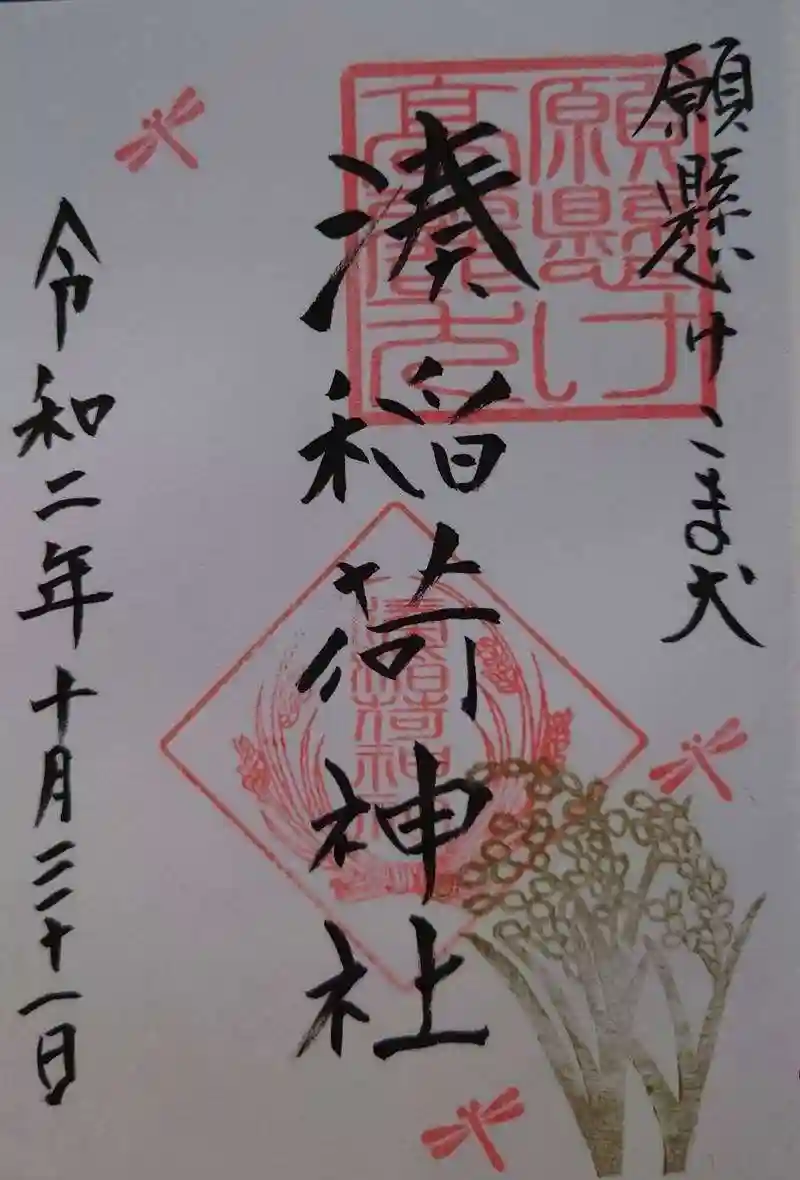 願懸けこま犬
湊稲荷神社
令和二年十月三十一日
願懸け
高麗犬
湊稲荷神社